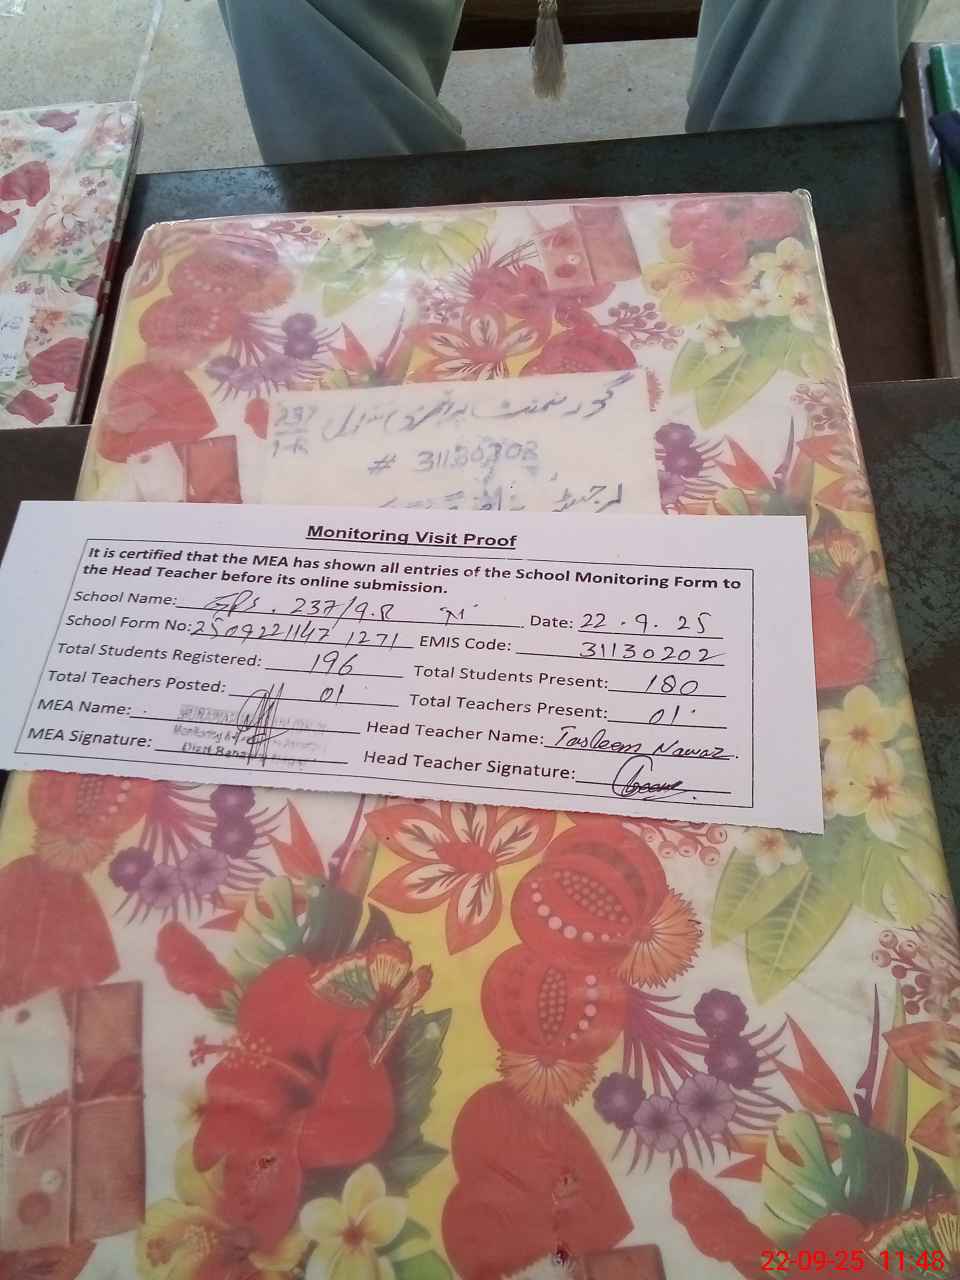 گورنمنٹ پرائمری سکول 237
9-R
# 31130202
رجسٹر
Monitoring Visit Proof
It is certified that the MEA has shown all entries of the School Monitoring Form to
the Head Teacher before its online submission.
School Name: GPS. 237/9.R "M" Date: 22.9.25
School Form No: 2509221147 1271 EMIS Code: 31130202
Total Students Registered: 196 Total Students Present: 180
Total Teachers Posted: 01 Total Teachers Present: 01
MEA Name: Head Teacher Name: Tasleem Nawaz.
MEA Signature: Head Teacher Signature:
22-09-25 11:48